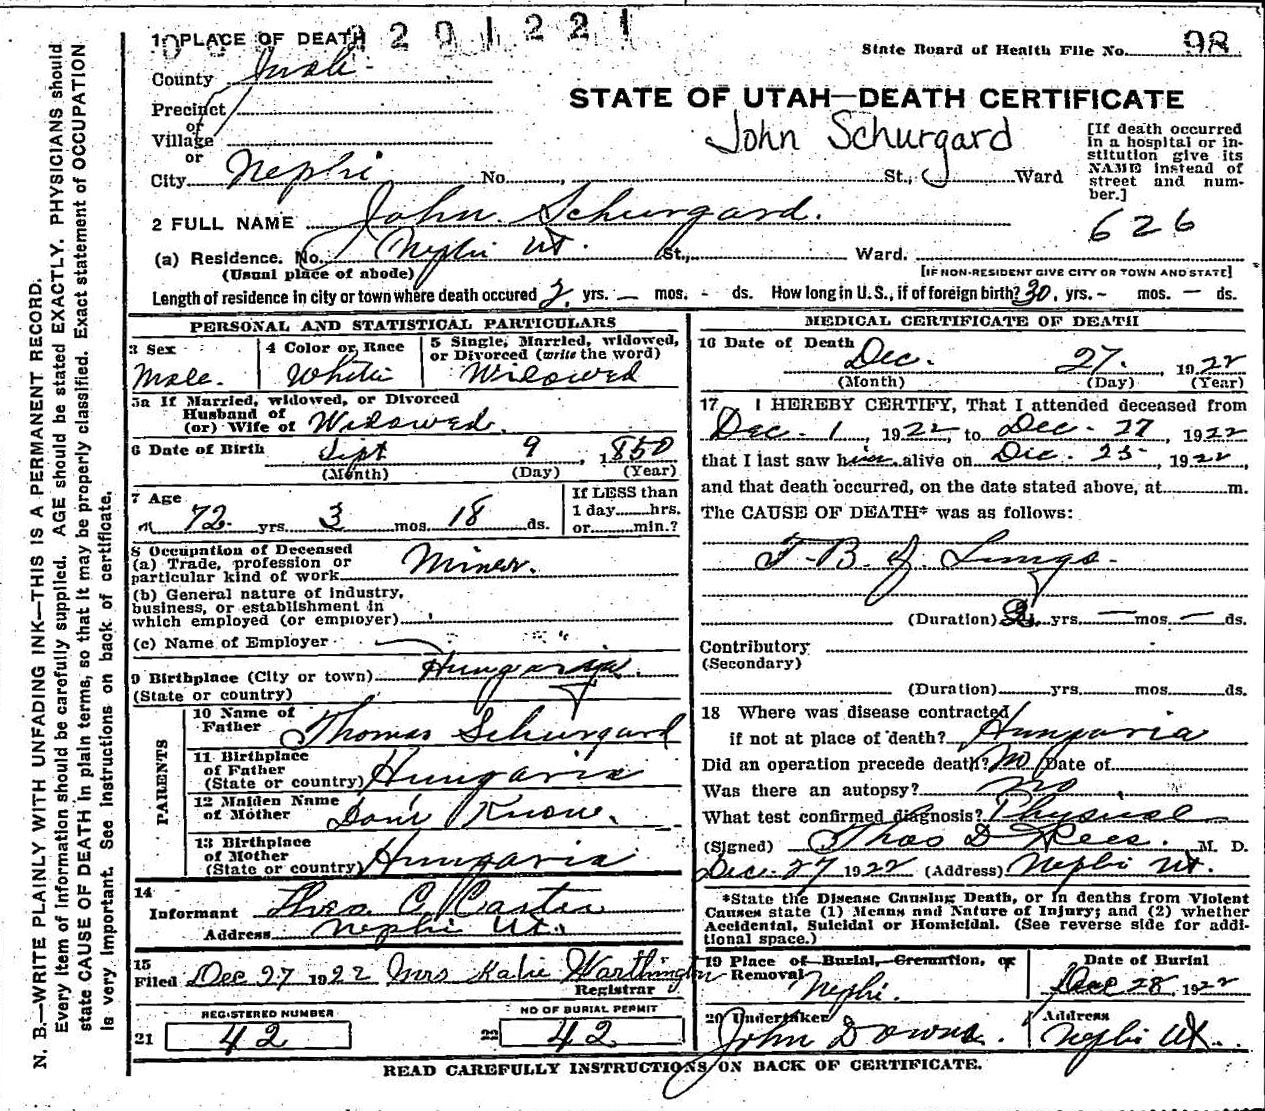 1 PLACE OF DEATH 2201221
State Board of Health File No. 98
County Juab
Precinct
or
Village
or
City Nephi No. , St., Ward
STATE OF UTAH—DEATH CERTIFICATE
John Schurgard
[If death occurred in a hospital or in-
stitution give its
NAME instead of
street and num-
ber.]
626
2 FULL NAME John Schurgard.
(a) Residence. No. Nephi Ut. St., Ward.
(Usual place of abode)
[IF NON-RESIDENT GIVE CITY OR TOWN AND STATE]
Length of residence in city or town where death occured 2 yrs. — mos. - ds. How long in U.S., if of foreign birth? 30, yrs. - mos. — ds.
PERSONAL AND STATISTICAL PARTICULARS
3 Sex
Male.
4 Color or Race
White
5 Single, Married, widowed,
or Divorced (write the word)
Widowed
5a If Married, widowed, or Divorced
Husband of
(or) Wife of Widowed.
6 Date of Birth Sept 9, 1850
(Month) (Day) (Year)
7 Age
72 yrs. 3 mos. 18 ds.
If LESS than
1 day hrs.
or min.?
8 Occupation of Deceased
(a) Trade, profession or
particular kind of work Miner.
(b) General nature of Industry,
business, or establishment in
which employed (or employer)
(c) Name of Employer
9 Birthplace (City or town) Hungaria
(State or country)
PARENTS
10 Name of
Father Thomas Schurgard
11 Birthplace
of Father
(State or country) Hungaria
12 Maiden Name
of Mother Don't Know.
13 Birthplace
of Mother
(State or country) Hungaria
14
Informant Thos. C. Carter
Address Nephi Ut.
15
Filed Dec 27 1922 Mrs Katie Warthington
Registrar
REGISTERED NUMBER
21 42
NO OF BURIAL PERMIT
22 42
MEDICAL CERTIFICATE OF DEATH
16 Date of Death
Dec. 27. , 1922
(Month) (Day) (Year)
17 I HEREBY CERTIFY, That I attended deceased from
Dec. 1, 1922, to Dec. 27, 1922
that I last saw him alive on Dec. 25, 1922,
and that death occurred, on the date stated above, at m.
The CAUSE OF DEATH* was as follows:
T.B. of Lungs.
(Duration) yrs. — mos. — ds.
Contributory
(Secondary)
(Duration) yrs. mos. ds.
18 Where was disease contracted
if not at place of death? Hungaria
Did an operation precede death? No Date of
Was there an autopsy? no
What test confirmed diagnosis? Physical
(Signed) Thos D Rees. M. D.
Dec. 27 1922 (Address) Nephi Ut.
*State the Disease Causing Death, or in deaths from Violent
Causes state (1) Means and Nature of Injury; and (2) whether
Accidental, Suicidal or Homicidal. (See reverse side for addi-
tional space.)
19 Place of Burial, Cremation, or
Removal
Nephi.
Date of Burial
Dec 28, 1922
20 Undertaker
John Downs.
Address
Nephi Ut.
READ CAREFULLY INSTRUCTIONS ON BACK OF CERTIFICATE.
N. B.—WRITE PLAINLY WITH UNFADING INK—THIS IS A PERMANENT RECORD.
Every item of Information should be carefully supplied. AGE should be stated EXACTLY. PHYSICIANS should
state CAUSE OF DEATH in plain terms, so that it may be properly classified. Exact statement of OCCUPATION
is very important. See Instructions on back of certificate.